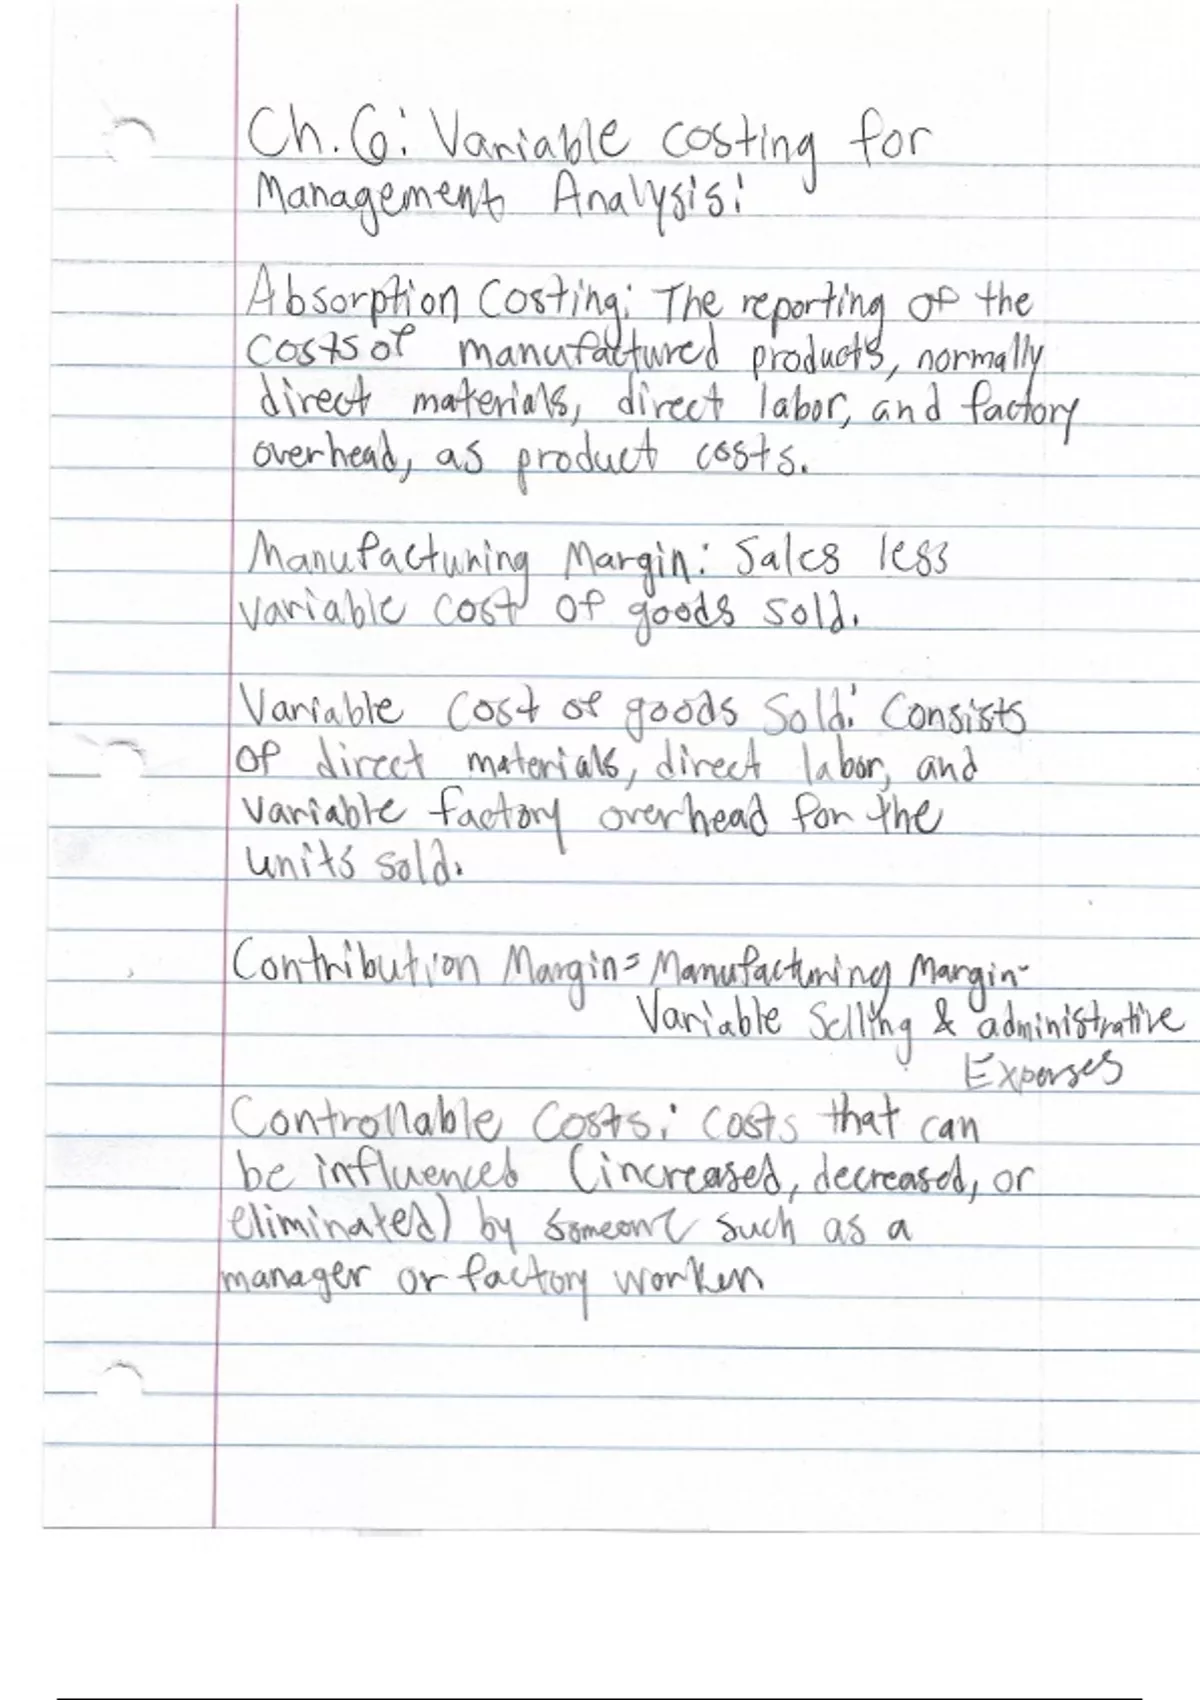 Ch. 6: Variable costing for
Management Analysis:
Absorption Costing: The reporting of the
costs of manufactured products, normally
direct materials, direct labor, and factory
overhead, as product costs.
Manufacturing Margin: Sales less
variable cost of goods sold.
Variable cost of goods Sold: Consists
of direct materials, direct labor, and
variable factory overhead for the
units sold.
Contribution Margin = Manufacturing Margin -
Variable Selling & administrative
Expenses
Controllable Costs: costs that can
be influenced (increased, decreased, or
eliminated) by someone such as a
manager or factory worker